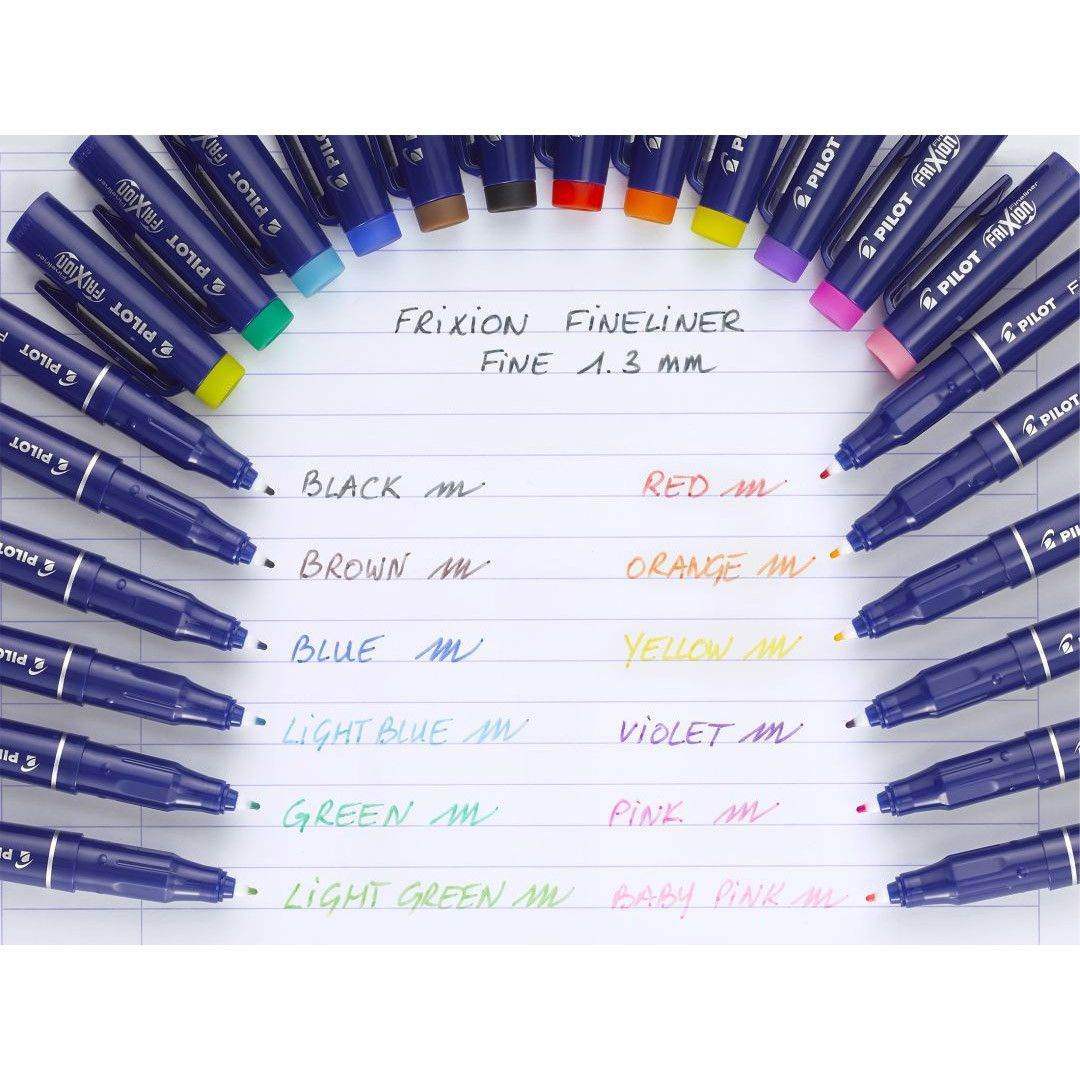 FRiXiON FiNELiNER
FiNE 1.3 mm
BLACK
RED
BROWN
ORANGE
BLUE
YELLOW
LiGHT BLUE
ViOLET
GREEN
PiNK
LiGHT GREEN
BABY PiNK
PILOT FRiXion Fineliner
PILOT FRiXion
PILOT
PILOT
PILOT
PILOT FRiXion
PILOT FRiXion Fineliner
PILOT
PILOT
PILOT
PILOT
PILOT